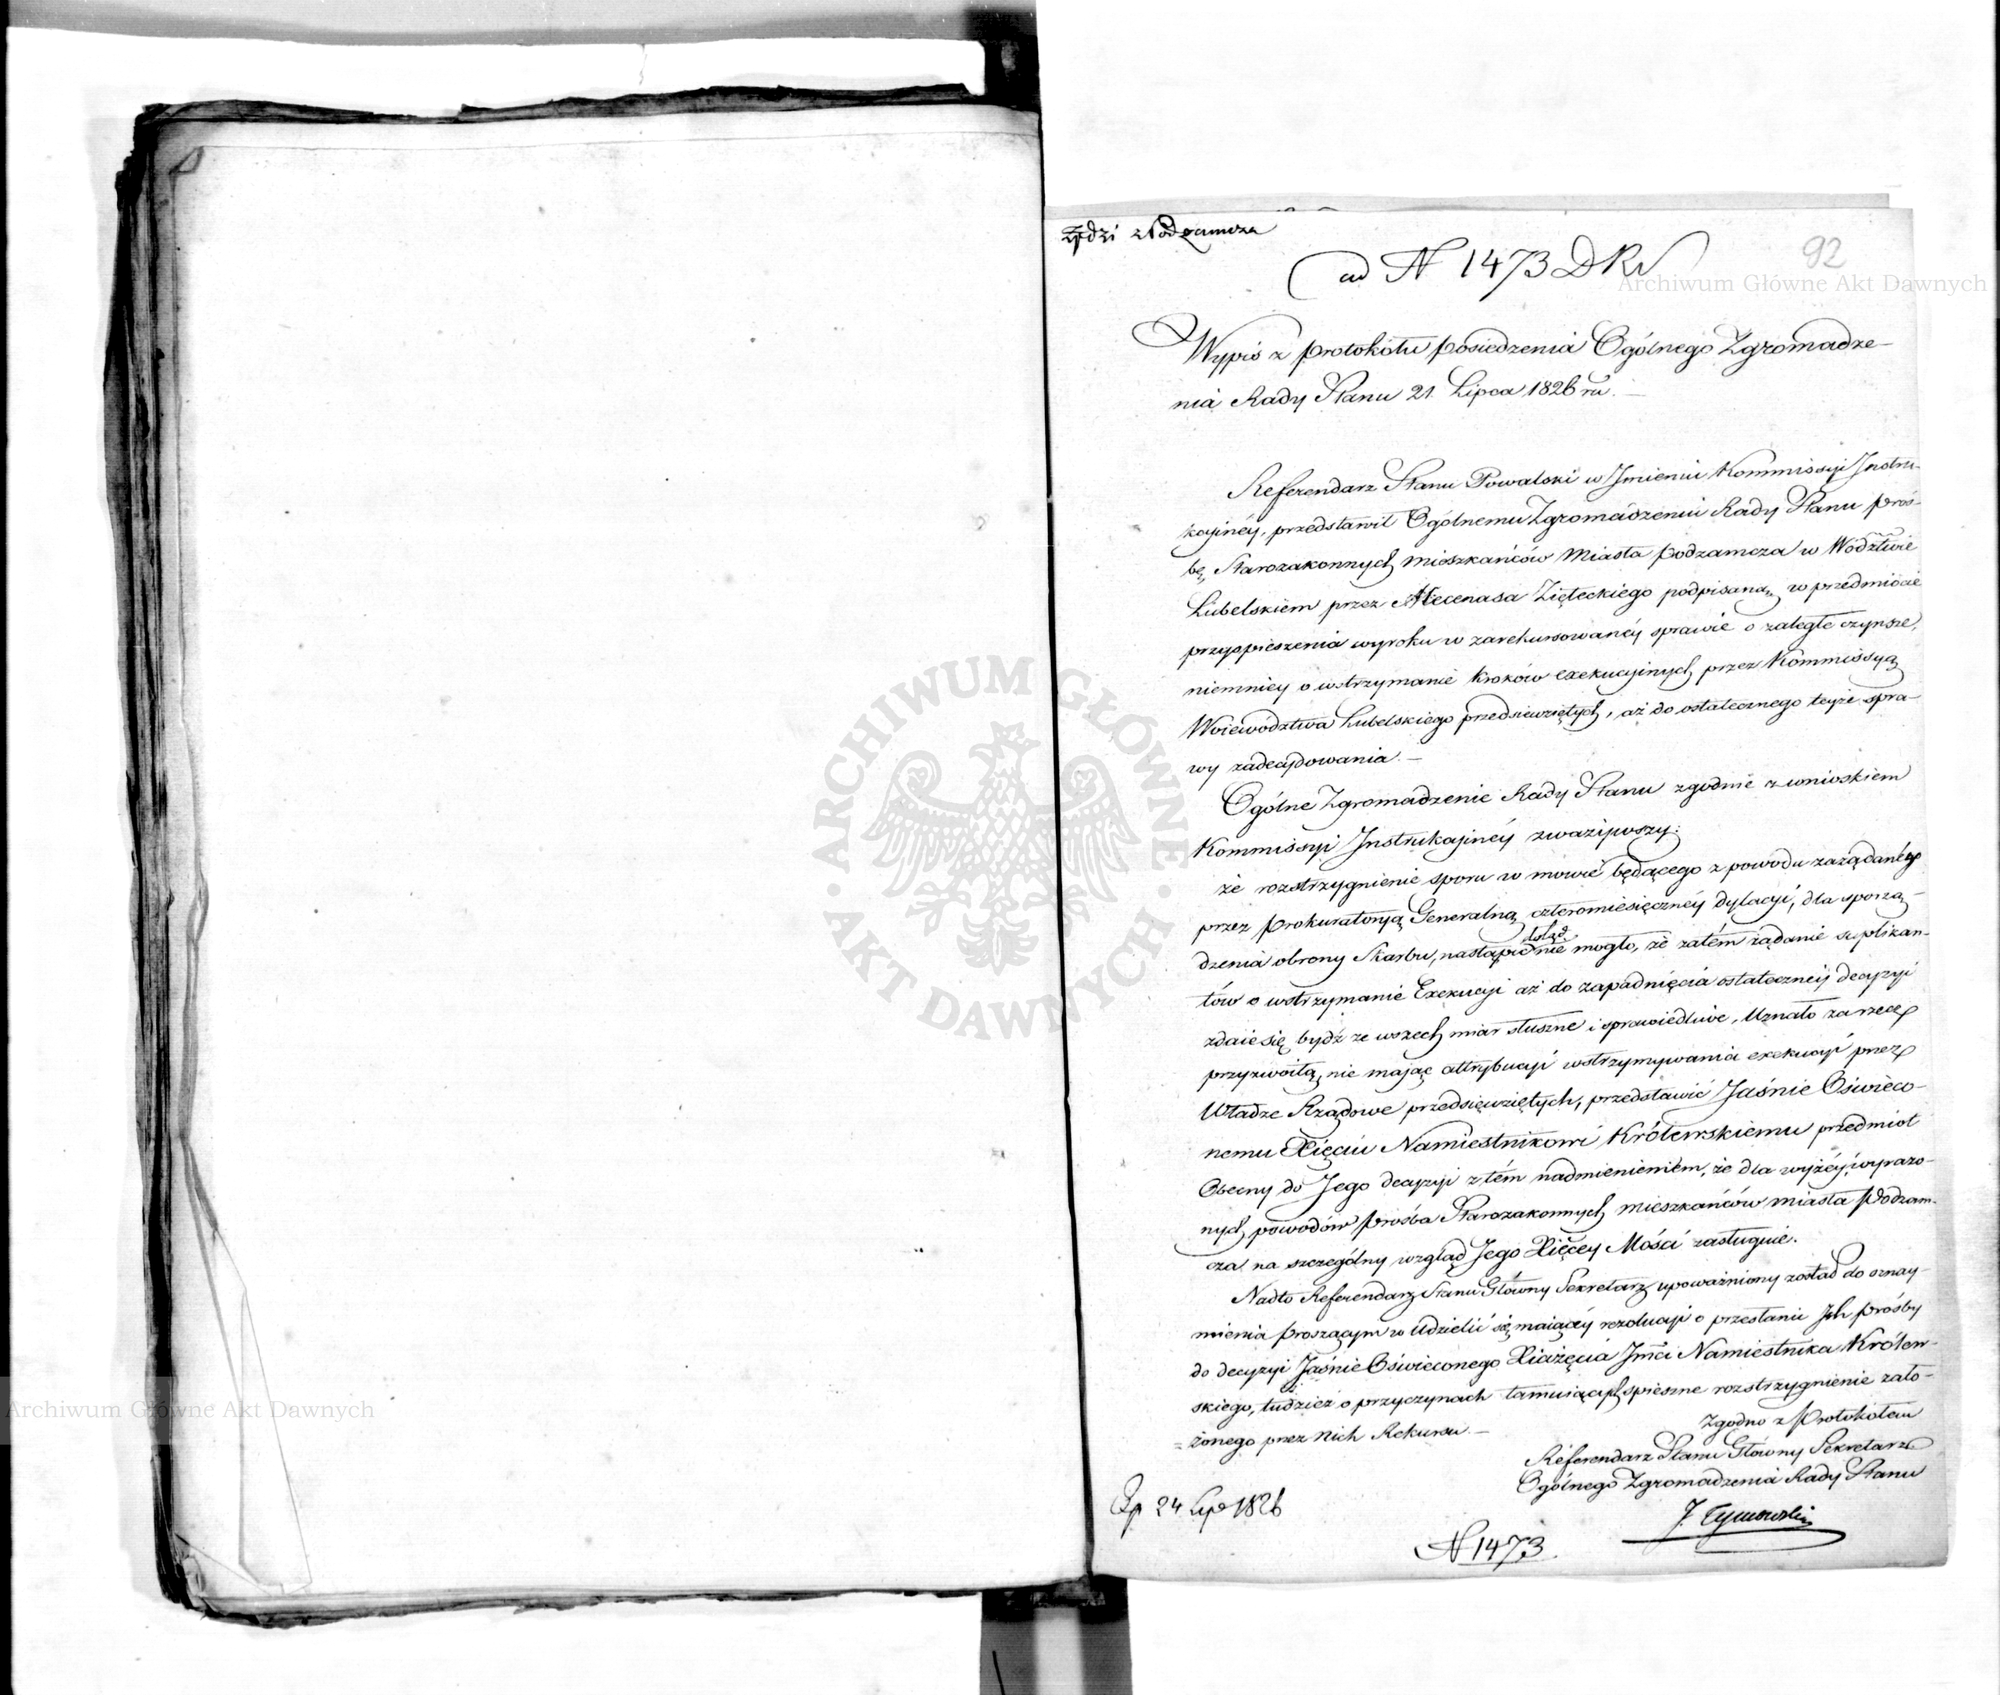 Żydzi z Podzamcza
92
ad N 1473 DRS
Archiwum Główne Akt Dawnych
Wypis z protokółu posiedzenia Ogólnego Zgromadze-
nia Rady Stanu 21. Lipca 1826 ru. —
Referendarz Stanu Powalski w Jmieniu Kommissyi Jnstru-
kcyjnéy, przedstawił Ogólnemu Zgromadzeniu Rady Stanu proś-
bę, Starozakonnych mieszkańców Miasta Podzamcza w Wodztwie
Lubelskiem przez Mecenasa Zięteckiego podpisaną, w przedmiocie
przyspieszenia wyroku w zarekursowanéy sprawie o zaległe czynsze,
niemniéy o wstrzymanie kroków exekucyinych przez Kommissyą
Woiewództwa Lubelskiego przedsiewziętych, aż do ostatecznego teyże spra-
wy zadecydowania. —
Ogólne Zgromadzenie Rady Stanu zgodnie z wnioskiem
Kommissyi Jnstrukcyjnéy zważiwszy:
że rozstrzygnienie sporu w mowie będącego z powodu zażądanéy
przez Prokuratoryą Generalną czteromiesięcznéy dylacyi, dla sporzą-
dzenia obrony Skarbu, nastąpić dotąd nie mogło, że zatém żądanie suplikan-
tów o wstrzymanie Exekucyi aż do zapadnięcia ostatecznéy decyzyi
zdaie się bydź ze wszech miar słuszne i sprawiedliwe, Uznało za rzecz
przyzwoitą, nie mając attrybucyi wstrzymywania exekucyi przez
Władze Rządowe przedsięwziętych, przedstawić Jaśnie Oświeco-
nemu Xięciu Namiestnikowi Królewskiemu przedmiot
Obecny do Jego decyzyi z tém nadmienieniem, że dla wyżéy wyrażo-
nych powodów prośba Starozakonnych mieszkańców miasta Podzam-
cza na szczególny wzgląd Jego Xięcey Mości zasługuie.
Nadto Referendarz Stanu Główny Sekretarz upoważniony został do oznay-
mienia proszącym w udzielić się maiącéy rezolucyi o przesłaniu Jch prośby
do decyzyi Jaśnie Oświeconego Xiążęcia Jmci Namiestnika Królew-
skiego, tudzież o przyczynach tamuiących spieszne rozstrzygnienie zało-
żonego przez Nich Rekursu. —
Zgodno z Protokółem
Referendarz Stanu Główny Sekretarz
Ogólnego Zgromadzenia Rady Stanu
J. Tymowski
Ep 24 Lip 1826
N 1473.
ARCHIWUM GŁÓWNE · AKT DAWNYCH ·
Archiwum Główne Akt Dawnych